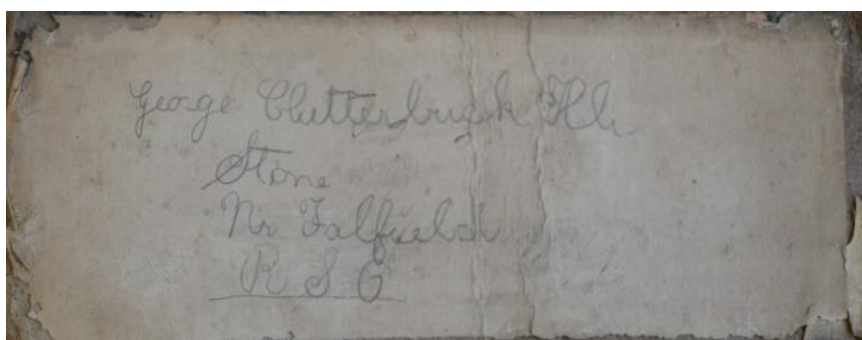 George Clutterbuck
Stone
Nr Falfield
R S O